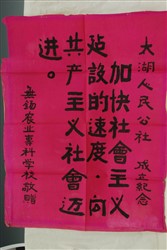 太湖人民公社 成立紀念
加快社會主义
建設的速度·向
共产主义社會迈
进。
無锡农业专科学校敬贈